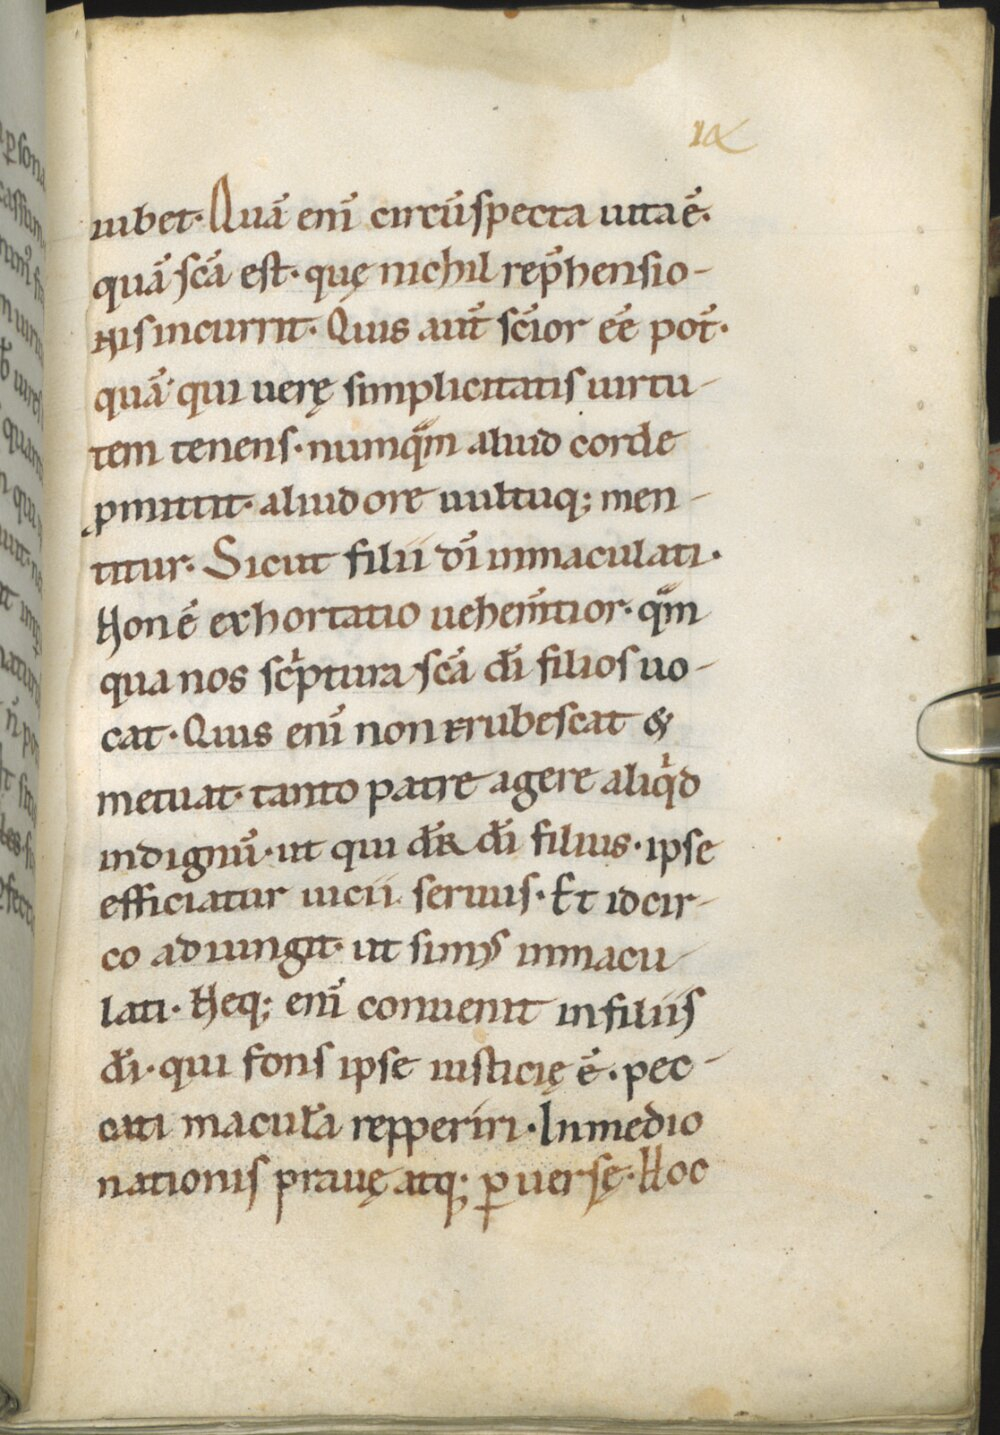 ıx
iubet· Quā enī circūspecta uita ē·
quā scā est· quę nichil rep̄hensio-
nis incurrit· Quis aut̄ sc̄ior eē pot̄·
quā qui uerę simplicitatis uirtu-
tem tenens· numq̄m aliud corde
p̱mittit· aliud ore uultuq; men-
titur· Sicut filii dī inmaculati·
Non ē exhortatio uehem̄tior· qm̄
qua nos sc̓ptura scā dī filios uo-
cat· Quis enī non erubescat &
metuat· tanto patre agere aliq̓d
indignū· ut qui dr̄ dī filius· ipse
efficiatur uicii seruus· Et idcir-
co adiungit· ut sim⁹ inmacu-
lati· Neq; enī conuenit in filiis
dī· qui fons ipse iusticię ē· pec-
cati macula repperiri· In medio
nationis prauę atq; ꝑuersę· Hoc